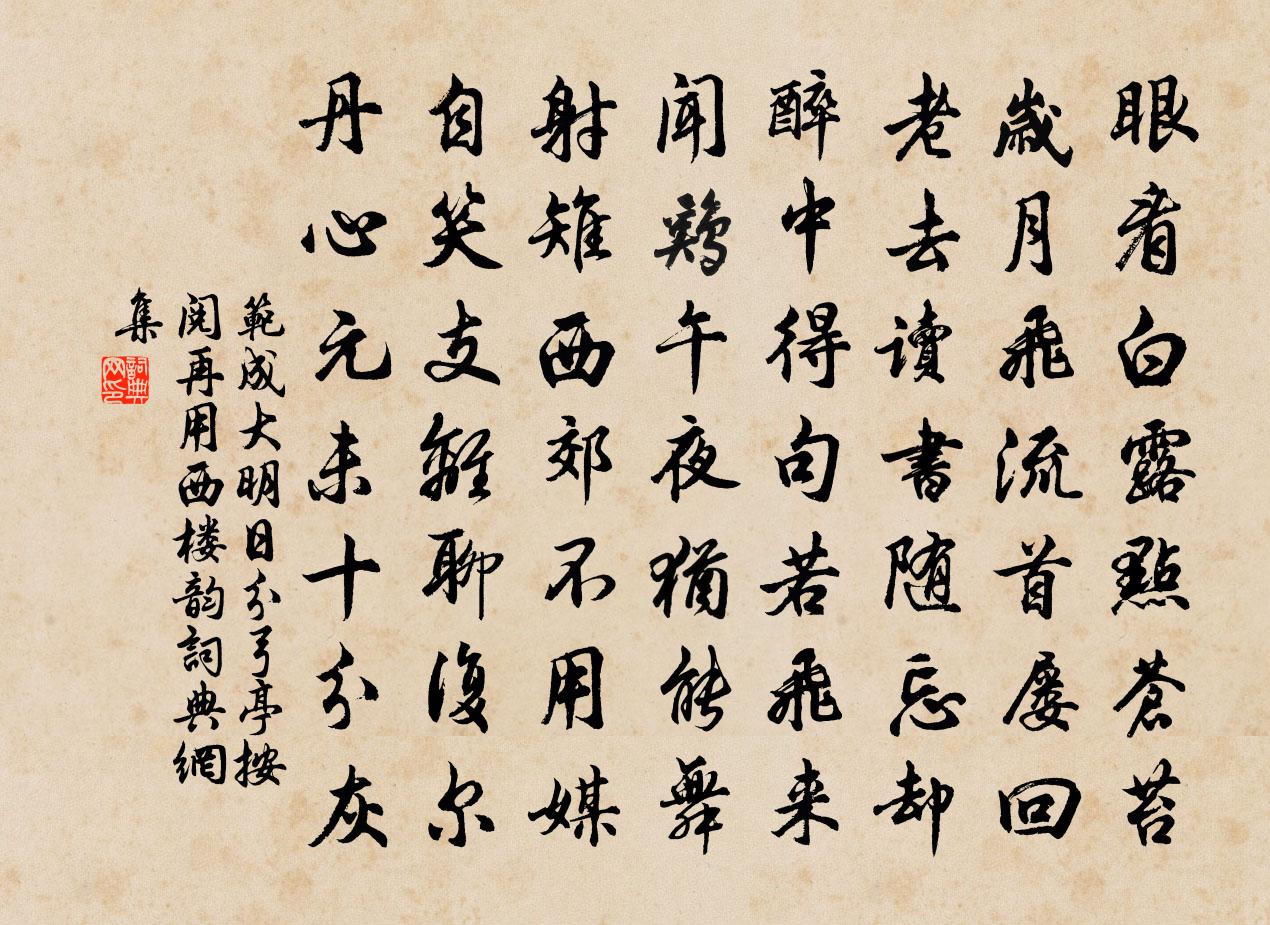 眼看白露點蒼苔
歲月飛流首屢回
老去讀書随忘却
醉中得句若飛来
闻鷄午夜猶能舞
射雉西郊不用媒
自笑支離聊復尔
丹心元未十分灰
範成大明日分弓亭按
閱再用西楼韵詞典網
集
詞典网印